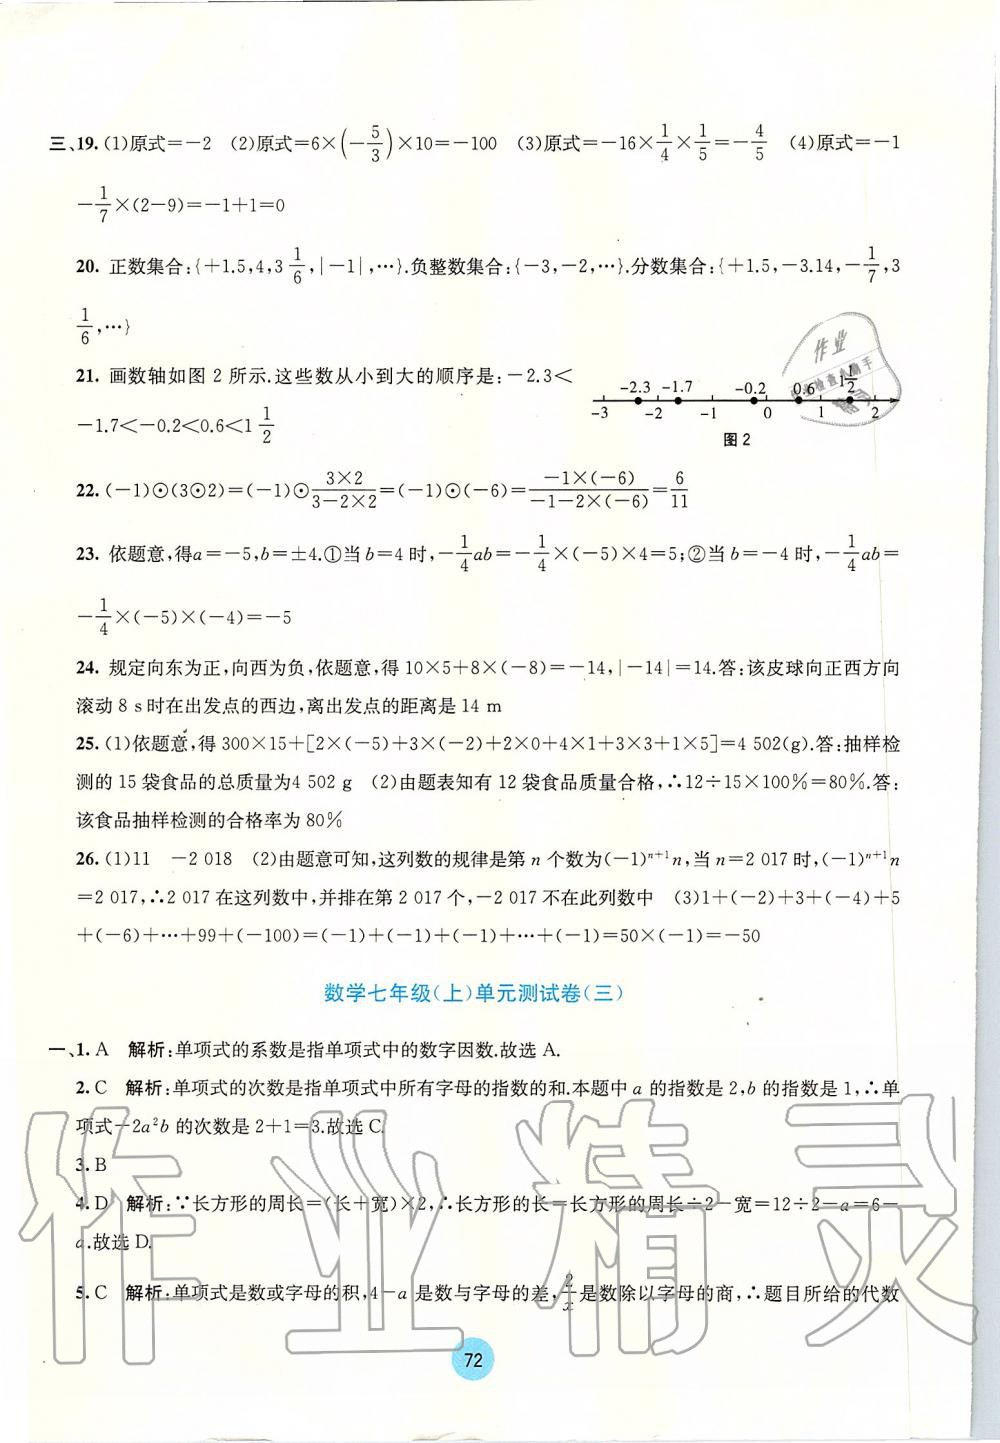 三、19. (1)原式=-2 (2)原式=6×(-5/3)×10=-100 (3)原式=-16×1/4×1/5=-4/5 (4)原式=-1
-1/7×(2-9)=-1+1=0
20. 正数集合:{+1.5,4,3 1/6,|-1|,…}.负整数集合:{-3,-2,…}.分数集合:{+1.5,-3.14,-1/7,3
1/6,…}
21. 画数轴如图 2 所示.这些数从小到大的顺序是:-2.3<
-1.7<-0.2<0.6<1 1/2
-2.3 -1.7 -0.2 0.6 1 1/2
-3 -2 -1 0 1 2
图 2
作业
22. (-1)⊙(3⊙2)=(-1)⊙(3×2)/(3-2×2)=(-1)⊙(-6)=(-1×(-6))/(-1-2×(-6))=6/11
23. 依题意,得a=-5,b=±4.①当 b=4 时,-1/4ab=-1/4×(-5)×4=5;②当 b=-4 时,-1/4ab=
-1/4×(-5)×(-4)=-5
24. 规定向东为正,向西为负,依题意,得 10×5+8×(-8)=-14,|-14|=14.答:该皮球向正西方向
滚动 8 s时在出发点的西边,离出发点的距离是 14 m
25. (1)依题意,得 300×15+[2×(-5)+3×(-2)+2×0+4×1+3×3+1×5]=4 502(g).答:抽样检
测的 15 袋食品的总质量为4 502 g (2)由题表知有 12 袋食品质量合格,∴12÷15×100%=80%.答:
该食品抽样检测的合格率为 80%
26. (1)11 -2 018 (2)由题意可知,这列数的规律是第 n 个数为(-1)ⁿ⁺¹n,当 n=2 017 时,(-1)ⁿ⁺¹n
=2 017,∴2 017 在这列数中,并排在第 2 017 个,-2 017 不在此列数中 (3)1+(-2)+3+(-4)+5
+(-6)+…+99+(-100)=(-1)+(-1)+(-1)+…+(-1)=50×(-1)=-50
数学七年级(上)单元测试卷(三)
一、1. A 解析:单项式的系数是指单项式中的数字因数.故选 A.
2. C 解析:单项式的次数是指单项式中所有字母的指数的和.本题中 a 的指数是 2,b 的指数是 1,∴单
项式-2a²b 的次数是 2+1=3.故选 C.
3. B
4. D 解析:∵长方形的周长=(长+宽)×2,∴长方形的长=长方形的周长÷2-宽=12÷2-a=6-
a.故选 D.
5. C 解析:单项式是数或字母的积,4-a 是数与字母的差,2/x是数除以字母的商,∴题目所给的代数
作业精灵
72